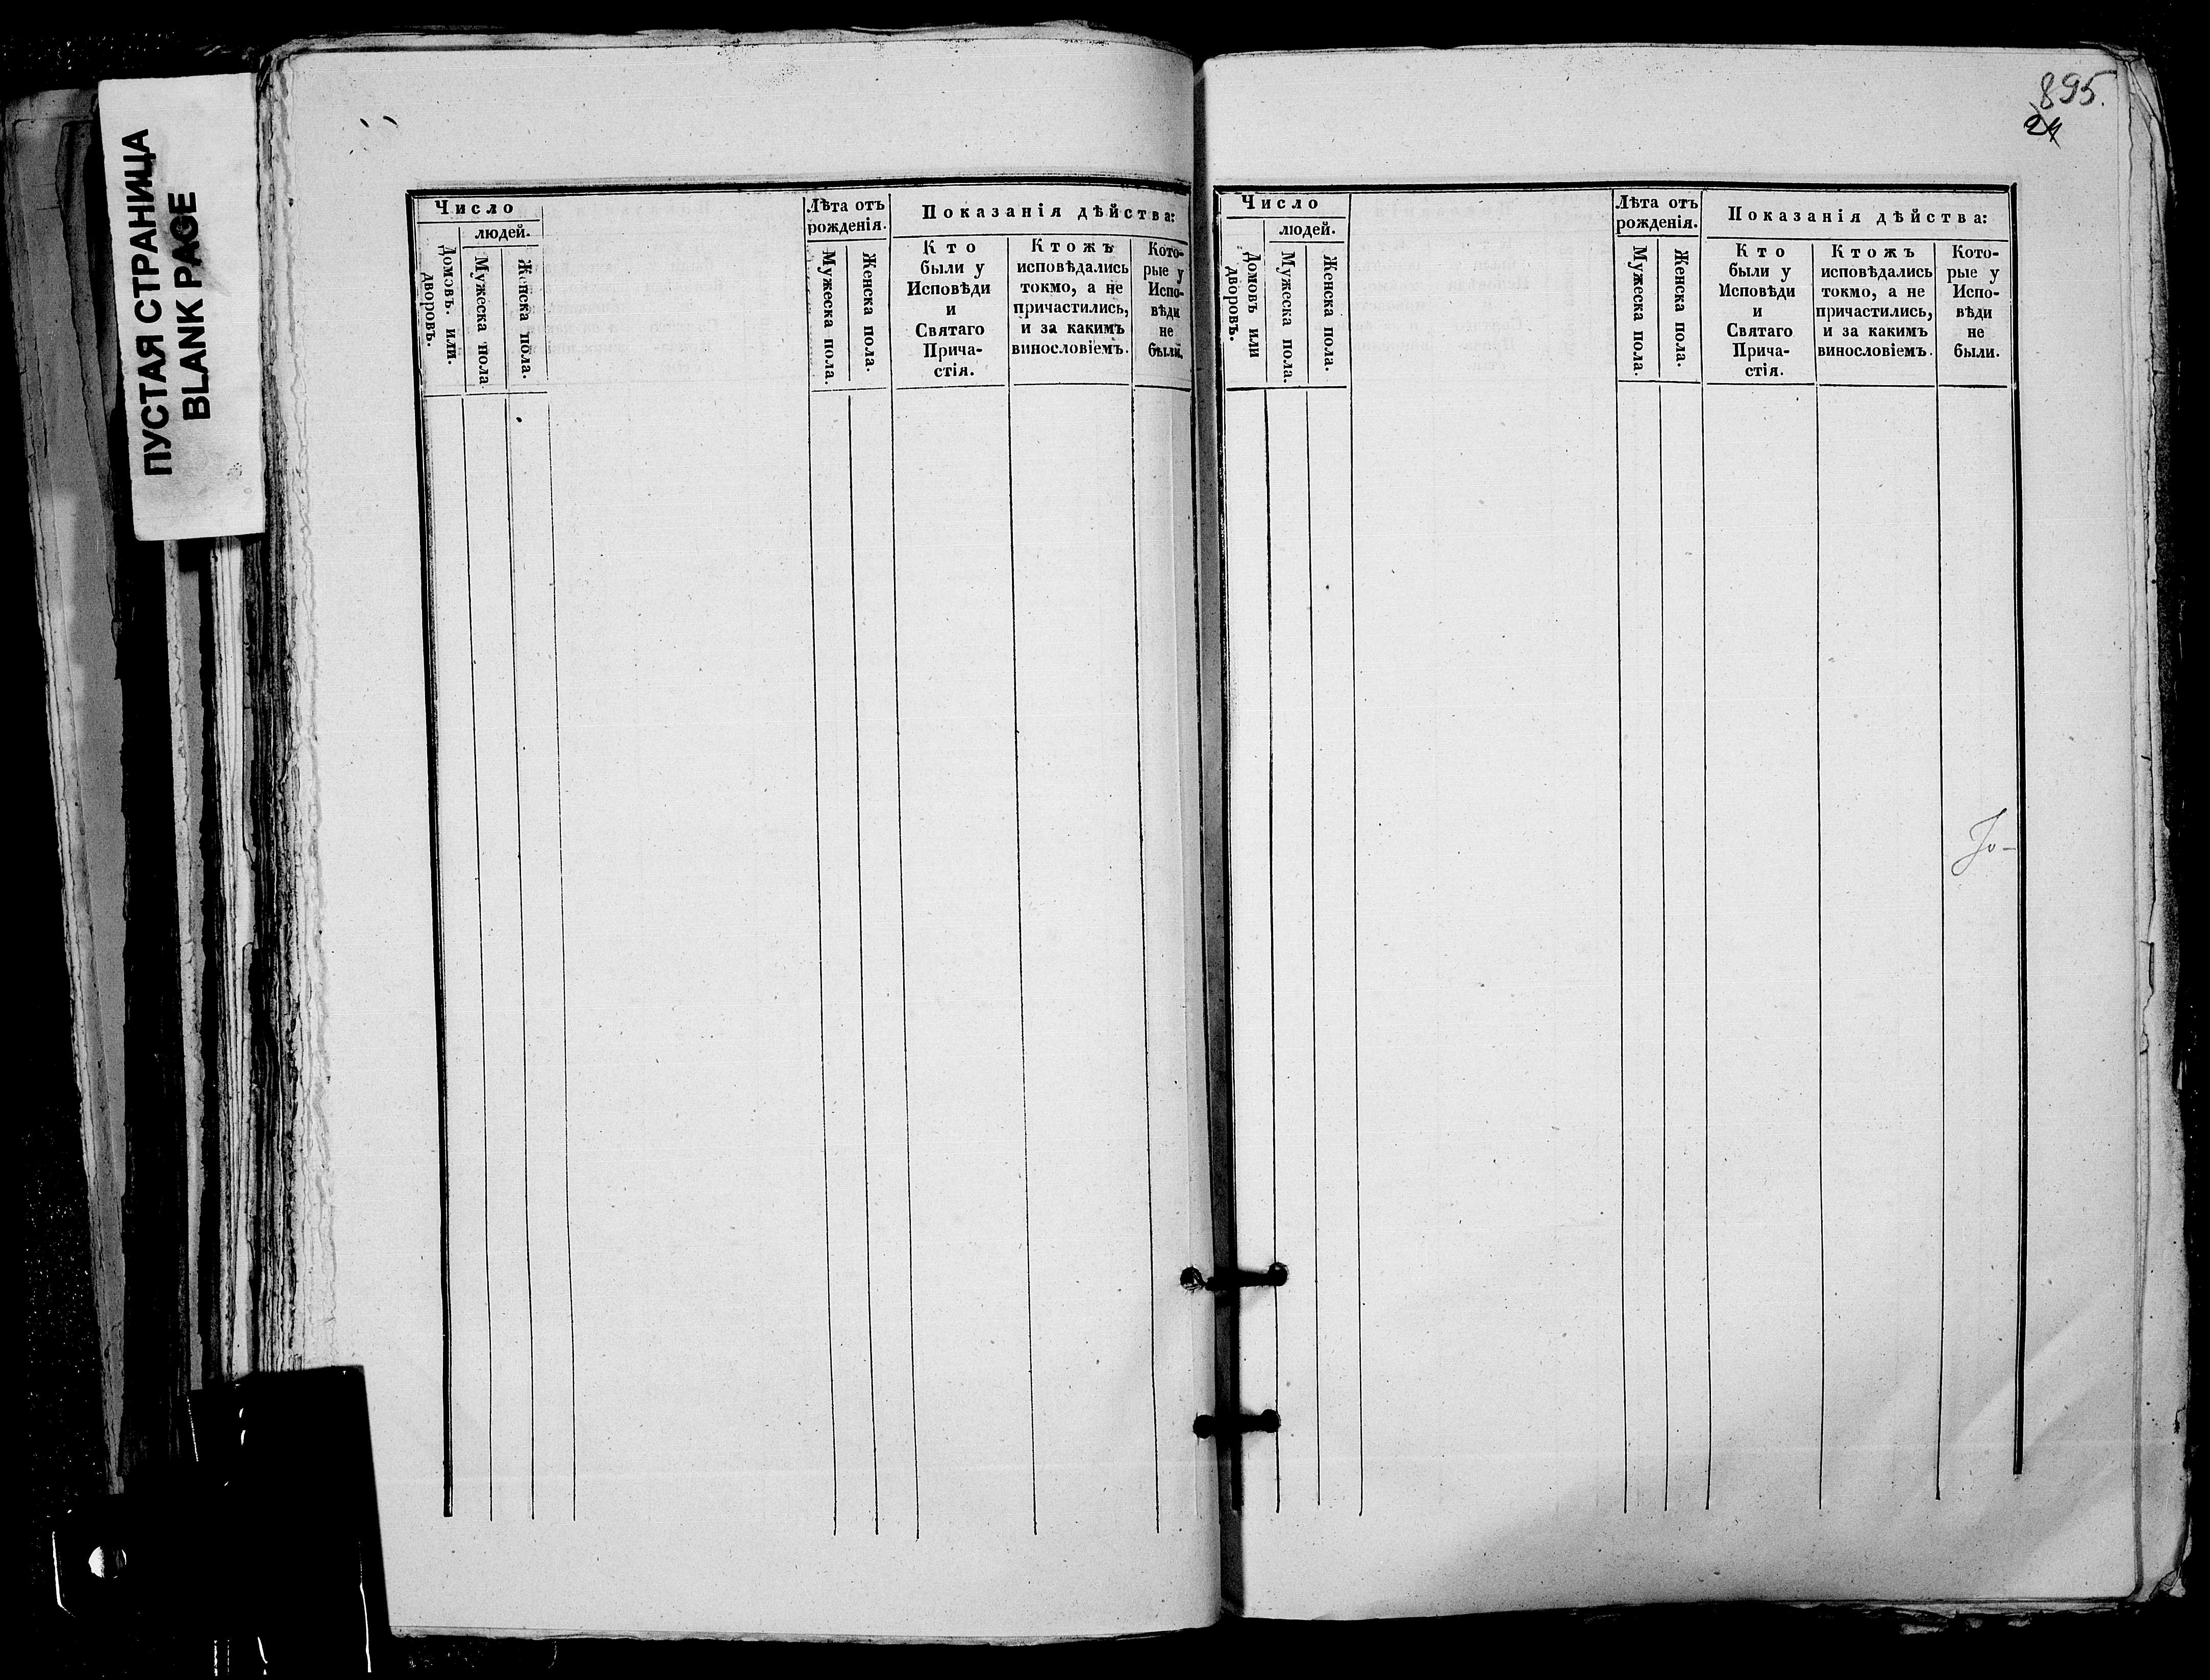 ПУСТАЯ СТРАНИЦА
BLANK PAGE
Число
людей.
Домовъ. или.
дворовъ.
Мужеска пола
Женска пола.
Лѣта отъ
рожденія.
Мужеска пола.
Женска пола.
Показанія дѣйства:
Кто
были у
Исповѣди
и
Святаго
Прича-
стія.
Ктожъ
исповѣдались
токмо, а не
причастились,
и за какимъ
винословіемъ.
Кото-
рые у
Испо-
вѣди
не
были.
895.
24
Число
людей.
Домовъ или
дворовъ.
Мужеска пола.
Женска пола.
Лѣта отъ
рожденія.
Мужеска пола.
Женска пола.
Показанія дѣйства:
Кто
были у
Исповѣди
и
Святаго
Прича-
стія.
Ктожъ
исповѣдались
токмо, а не
причастились,
и за какимъ
винословіемъ.
Кото-
рые у
Испо-
вѣди
не
были.